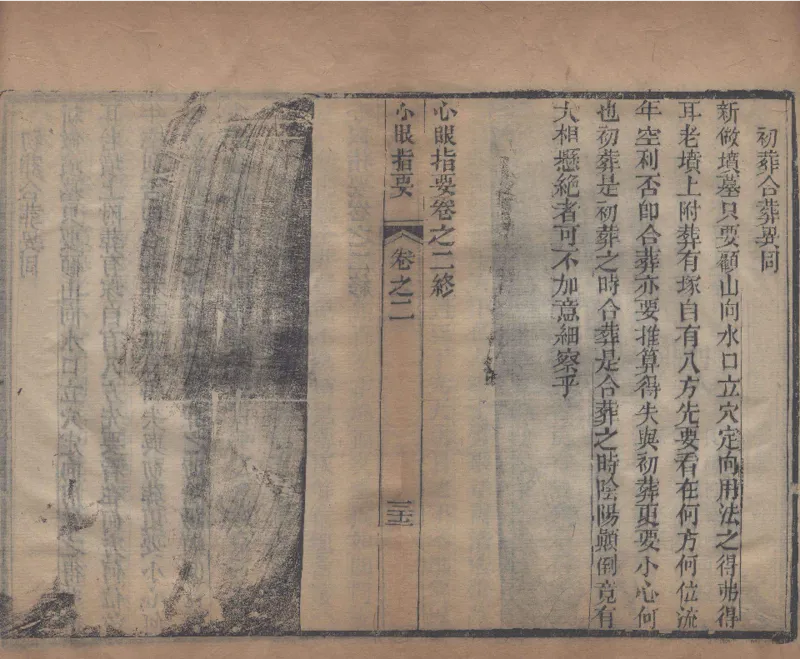 初葬合葬異同
新做墳墓只要顧山向水口立穴定向用法之得弗得
耳老墳上附葬有塚自有八方先要看在何方何位流
年空利否卽合葬亦要推算得失與初葬更要小心何
也初葬是初葬之時合葬是合葬之時陰陽顚倒竟有
大相懸絕者可不加意細察乎
心眼指要卷之二終
心眼指要
卷之二